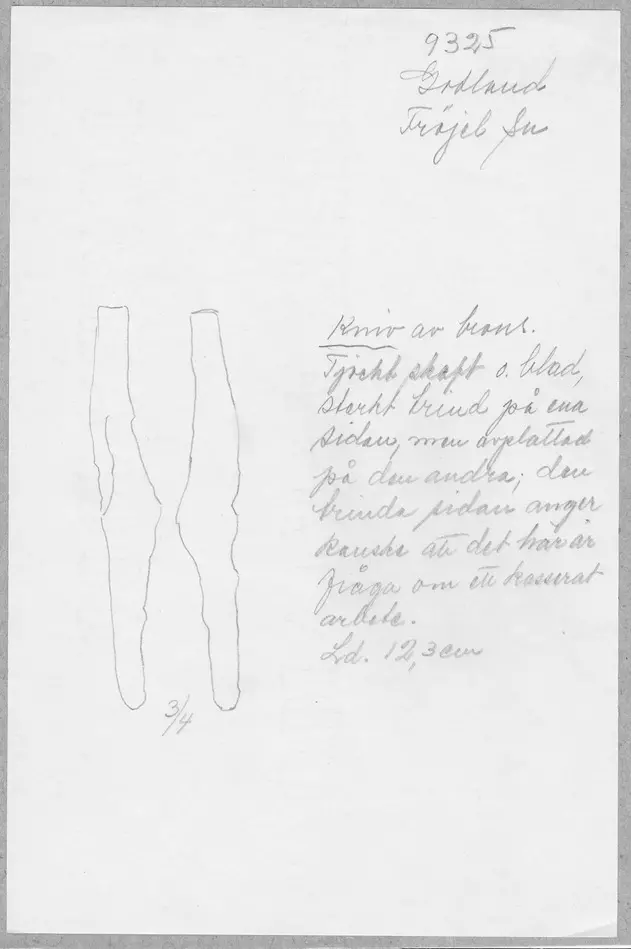 9325
Gotland
Fröjel Sn
Kniv av brons.
Tjockt skaft o. blad,
starkt trind på ena
sidan, men avplattad
på den andra; den
trinda sidan anger
kanske att det här är
fråga om ett kasserat
arbete.
Ld. 12,3 cm
3/4